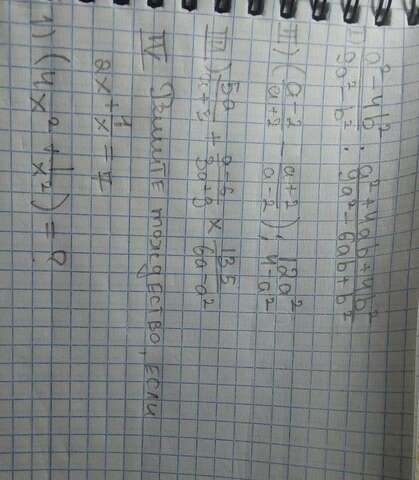 I) a²-4b² / 9a²-b² : a²+4ab+4b² / 9a²-6ab+b²
II) (a-2 / a+2 - a+2 / a-2) : 12a² / 4-a²
III) 5a / a+3 + a-6 / 3a+9 × 135 / 6a-a²
IV Решите тождество, если
2x + 1/x = 7
1) (4x² + 1/x²) = ?